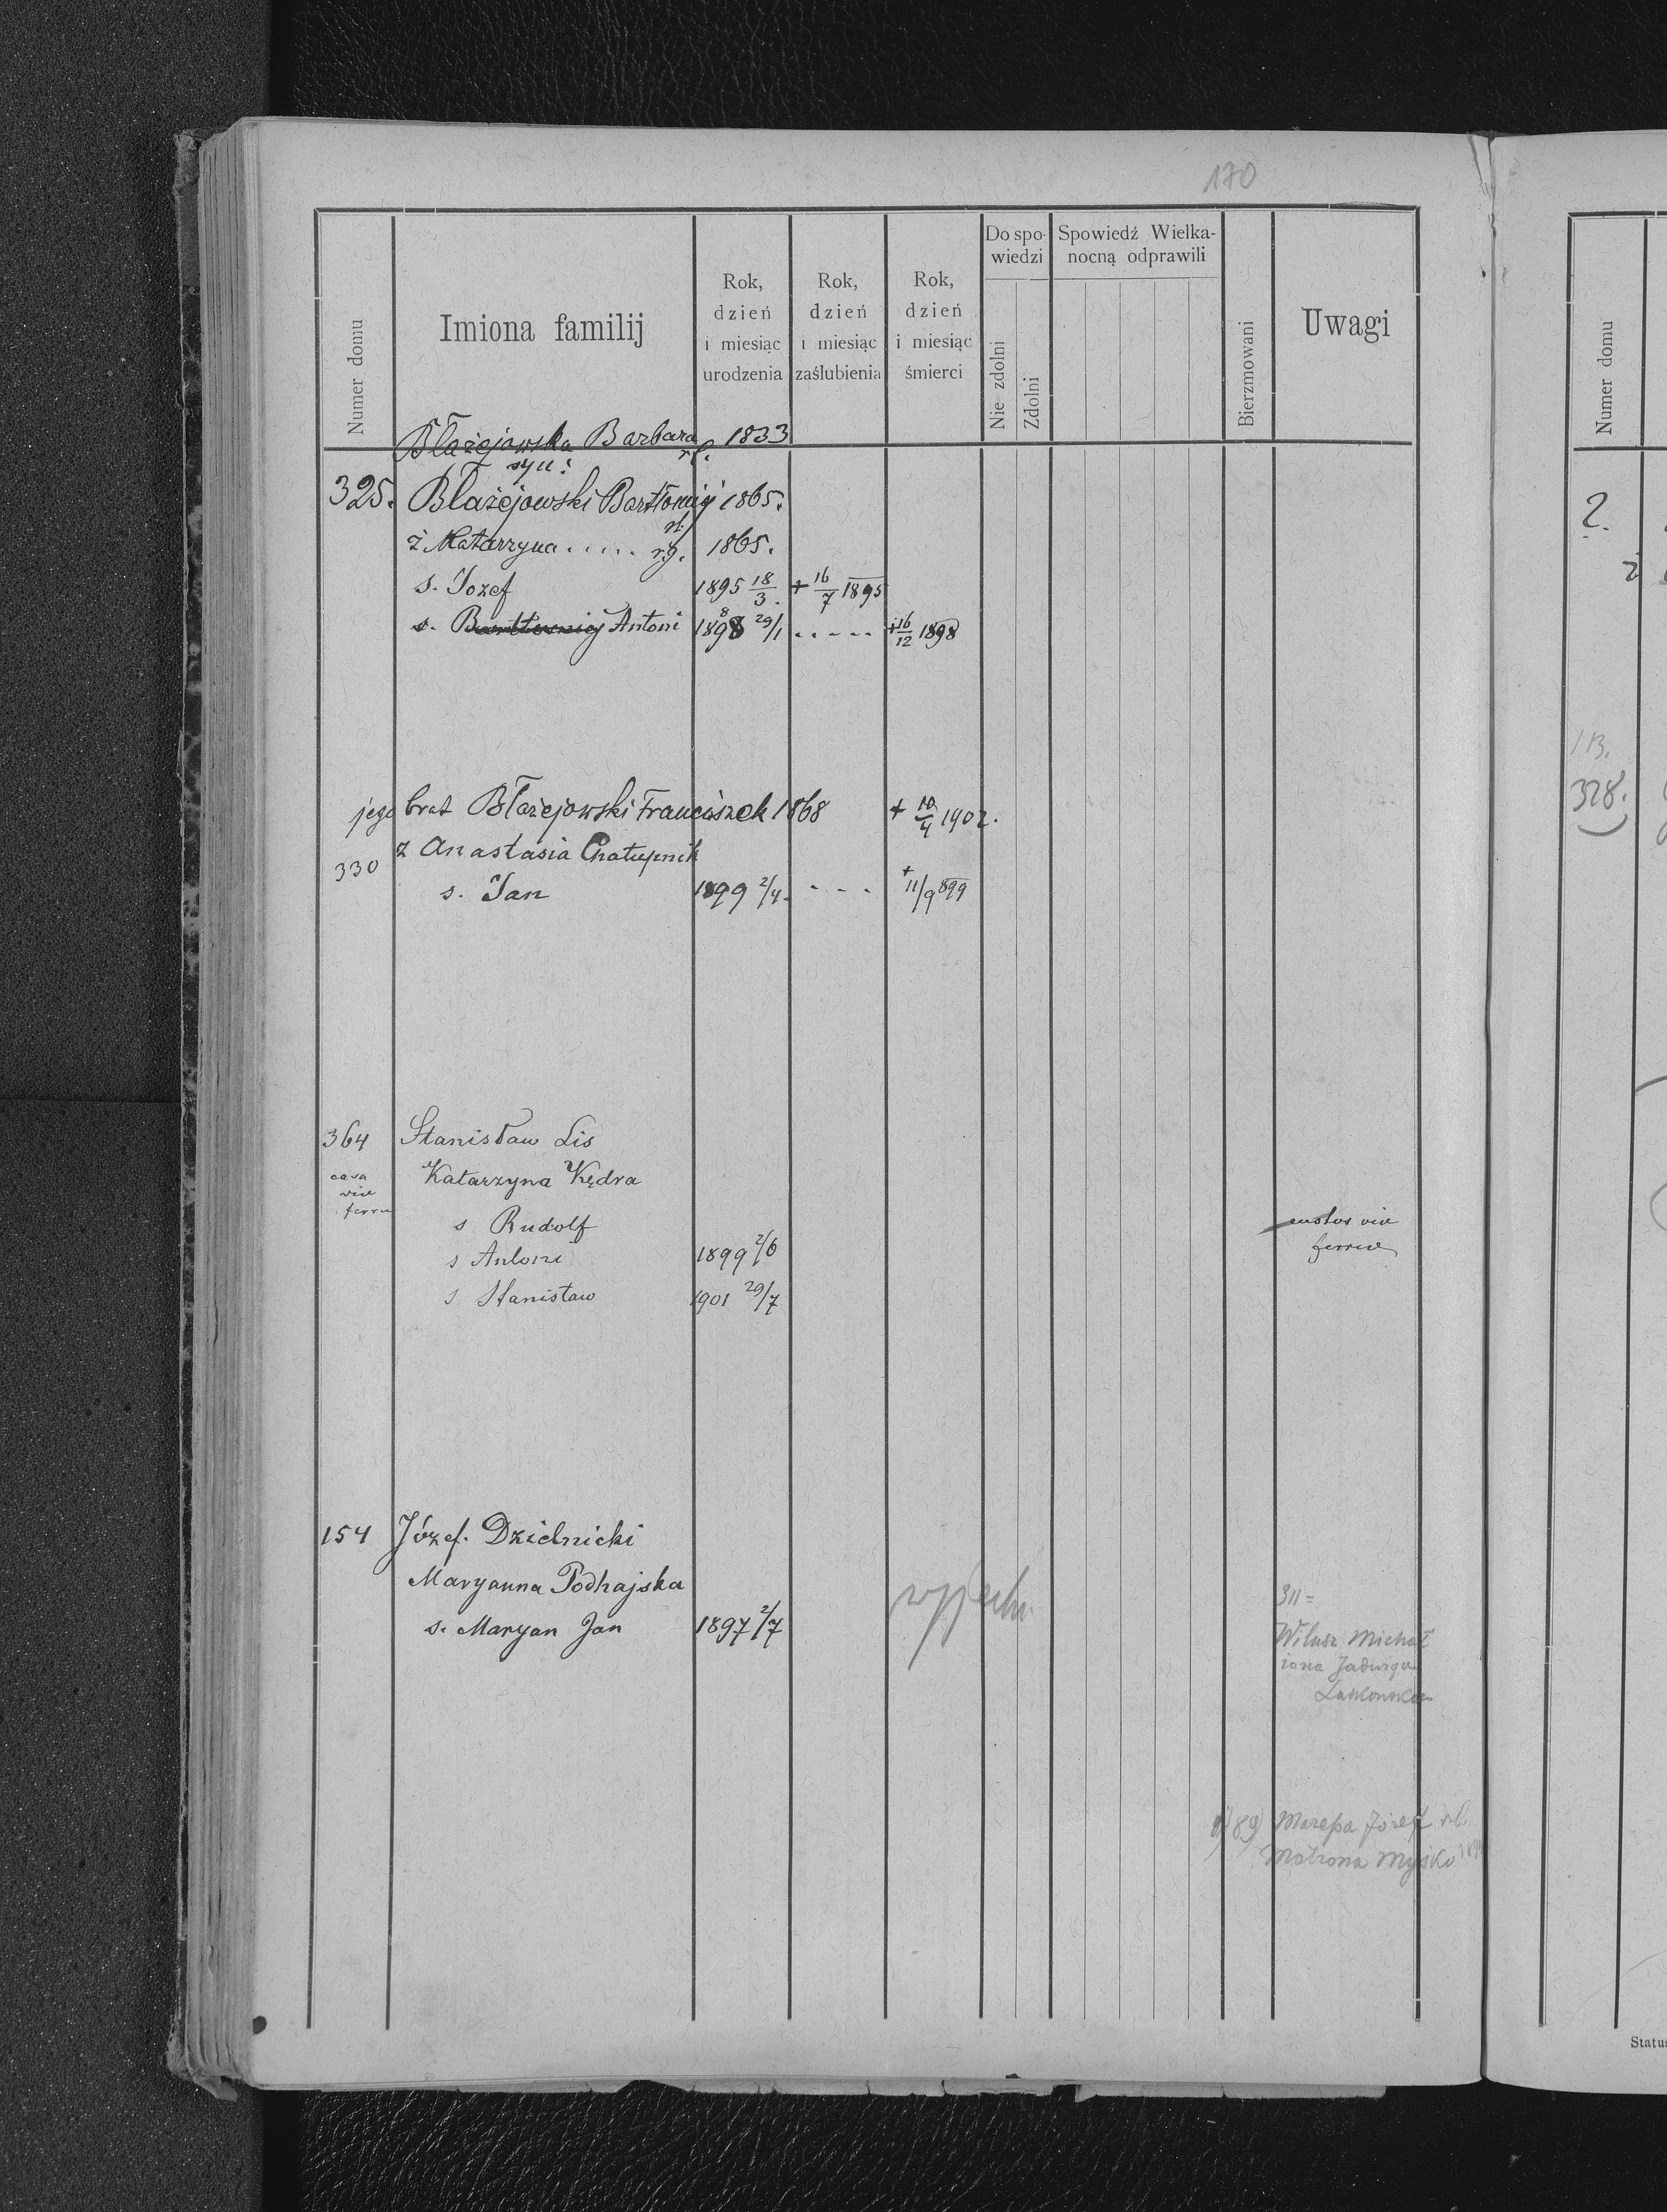 170
Numer domu
Imiona familij
Rok, dzień i miesiąc urodzenia
Rok, dzień i miesiąc zaślubienia
Rok, dzień i miesiąc śmierci
Do spowiedzi
Nie zdolni
Zdolni
Spowiedź Wielkanocną odprawili
Bierzmowani
Uwagi
Błażejowska Barbara rł. 1833
syn:
325. Błażejowski Bartłomiej rł. 1865.
ż Katarzyna ..... r.g. 1865.
s. Jozef 1895 18/3. + 16/7 1895
s. Bartłomiej Antoni 1898 8 29/1 ..... + 16/12 1898
jego brat Błażejowski Franciszek 1868 + 10/4 1902.
330 ż Anastasia Chałupnik
s. Jan 1899 2/4. .... + 11/9 899
364 Stanisław Lis
casa viae ferreae
Katarzyna Kędra
s Rudolf
custos viae
ferreae
s Antoni 1899 2/6
s Stanisław 1901 29/7
154 Józef. Dzielnicki
Maryanna Podhajska
s. Maryan Jan 1897 2/7
311 =
Wilusz Michał
żona Jadwiga
Laskowska
89) Mazepa Józef rł.
Matrona Myśko
Numer domu
2.
328.
Status